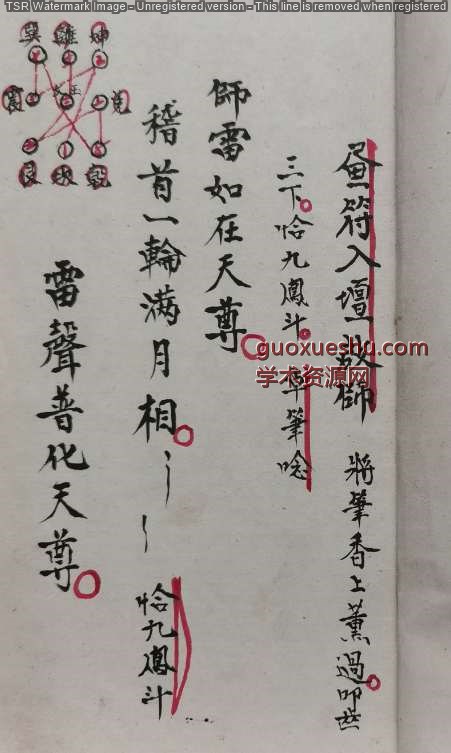 TSR Watermark Image - Unregistered version - This line is removed when registered
符入壇啟師 將筆香上薰過叩齒
三下。恰九鳳斗。草筆唸
師雷如在天尊。
稽首一輪滿月相。
恰九鳳斗
雷聲普化天尊。
巽 離 坤
震 兌
艮 坎 乾
guoxueshu.com
学术资源网